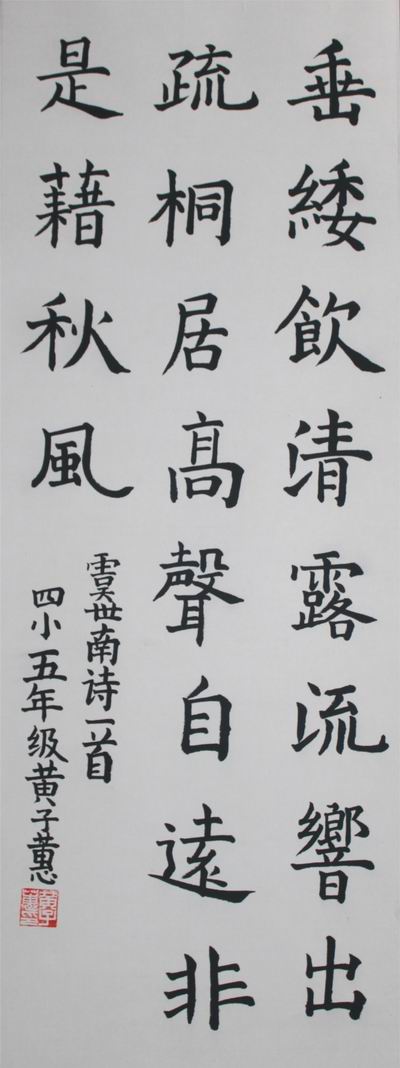 垂緌飲清露流響出
疏桐居高聲自遠非
是藉秋風
虞世南诗一首
四小五年级黄子蕙